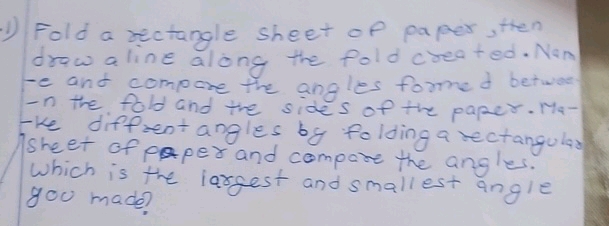 1) Fold a rectangle sheet of paper, then
draw a line along the fold created. Nam
-e and compare the angles formed betwee
-n the fold and the sides of the paper. Ma-
-ke diffrent angles by folding a rectangular
sheet of paper and compare the angles.
Which is the largest and smallest angle
you made?